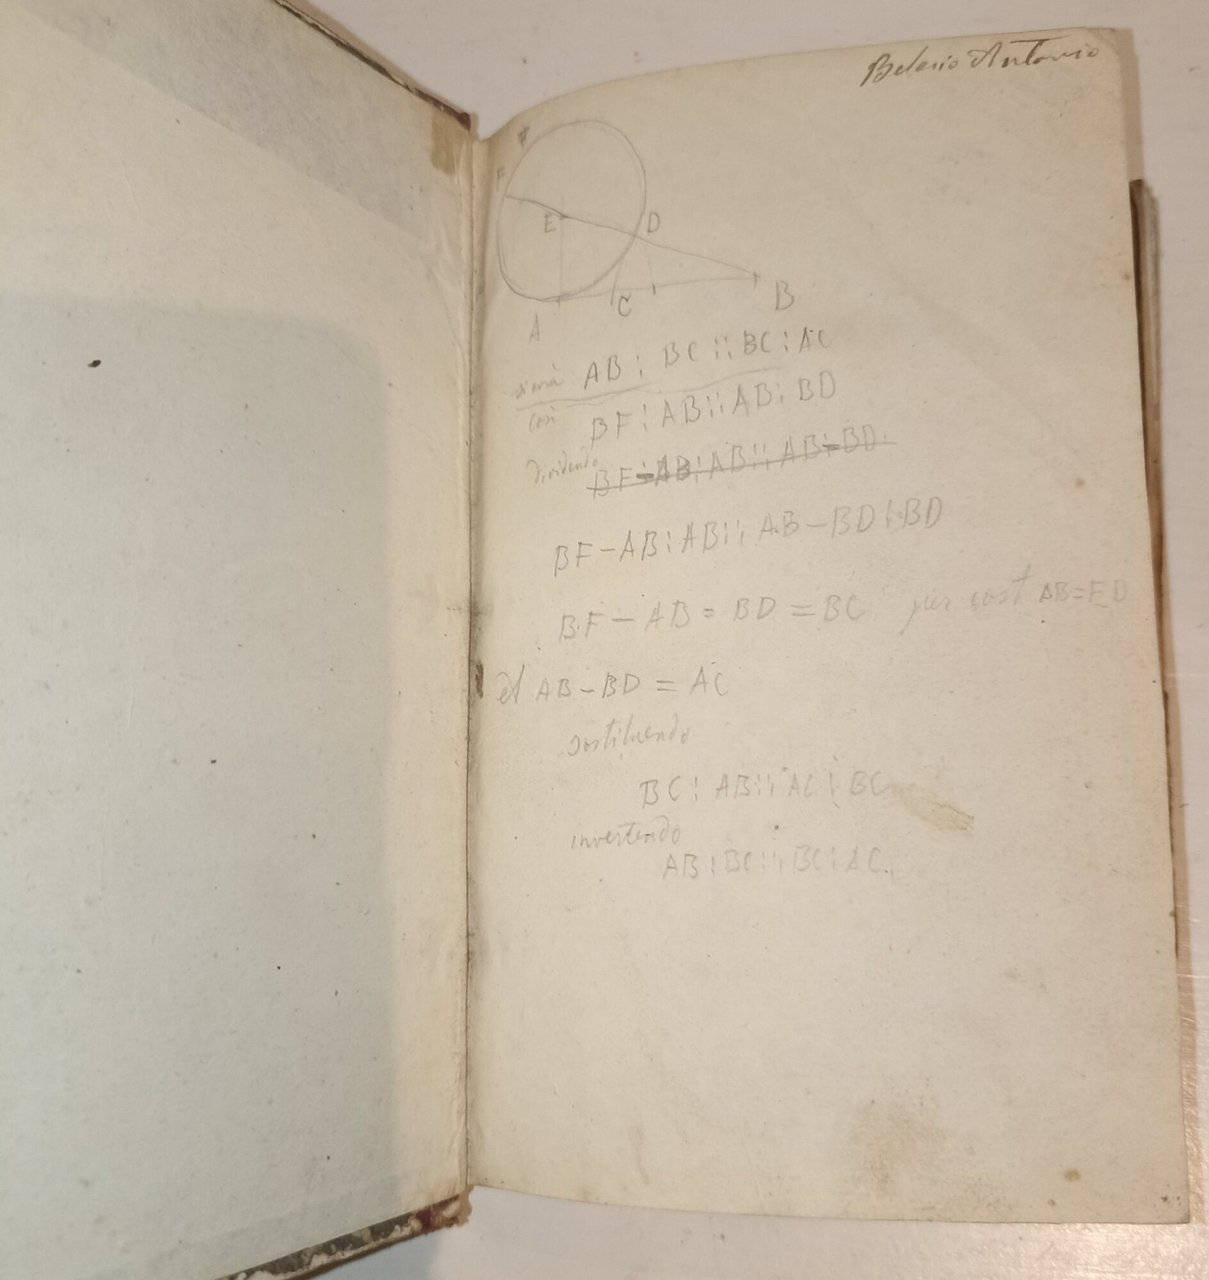 Belasio Antonio
F
E
D
A
C
B
si avrà AB : BC :: BC : AC
così BF : AB :: AB : BD
dividendo BF-AB : AB :: AB-BD
BF-AB : AB :: AB-BD : BD
BF-AB = BD = BC per cost AB=FD
et AB-BD = AC
sostituendo
BC : AB :: AC : BC
invertendo
AB : BC :: BC : AC.